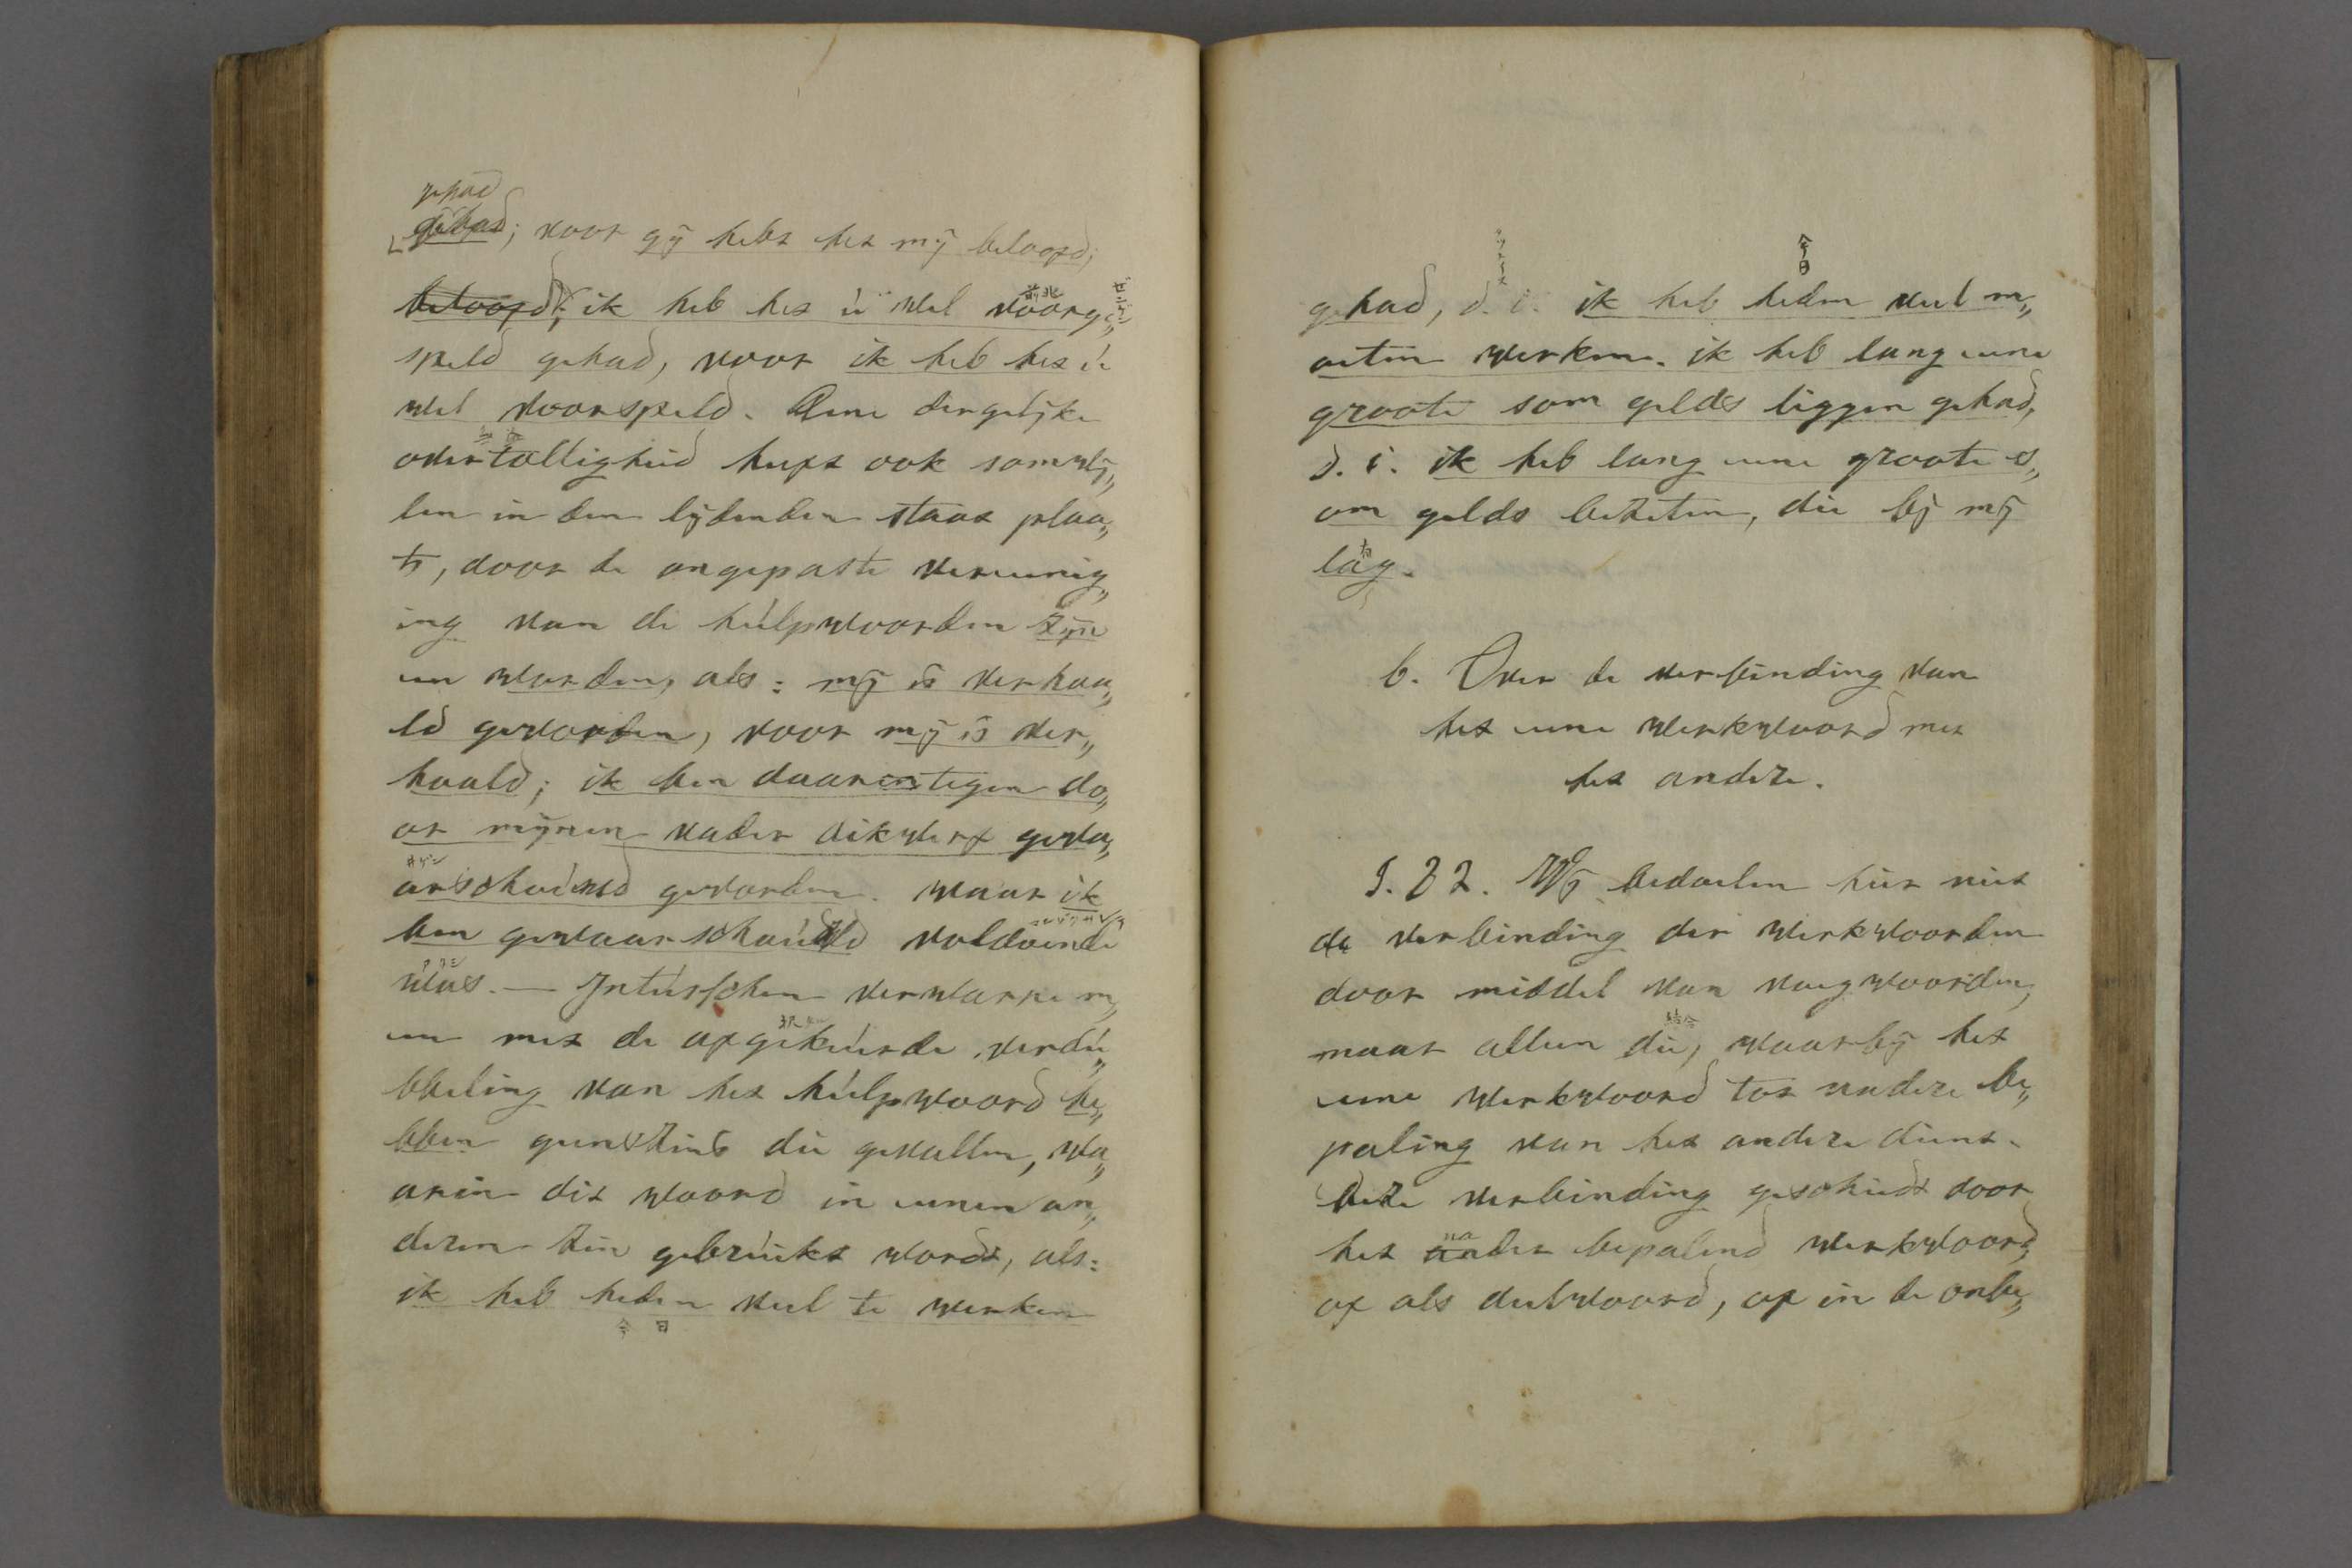 gehad
gehad; voor gij hebt het mij beloofd;
beloofd; ik heb het ú wel voorge„
speld gehad, voor ik heb het ú
wel voorspeld. Eene dergelijke
overtolligheid heeft ook somwij„
len in den lijdenden staat plaa„
ts, door de ongepaste vereenig„
ing van de húlpwoorden zijn
en worden, als: mij is verhaa„
ld geworden, voor mij is ver„
haald; ik ben daarentegen do„
or mijnen vader dikwerf gewa„
arschoúwd geworden. waar ik
ben gewaarschoúwd voldoende
was. — Intússchen verwarre m„
en met de afgekeúrde verdú„
bbeling van het húlpwoord he„
bben geenszins die gevallen, wa„
arin dit woord in eenen an„
deren zin gebrúikt wordt, als:
ik heb heden veel te werken
今日
今日
gehad, d. i. ik heb heden veel m„
oeten werken. ik heb lang eene
groote som gelds liggen gehad,
d. i. ik heb lang eene groote s„
om gelds bezeten, die bij mij
lag.
b. Over de verbinding van
het eene werkwoord met
het andere.
§. 82. Wij bedoelen hier niet
de verbinding der werkwoorden
door middel van voegwoorden,
maar alleen die, waarbij het
eene werkwoord tot nadere be„
paling van het andere dient.
Deze verbinding geschiedt door
het nader bepalend werkwoord,
of als deelwoord, of in de onbe„